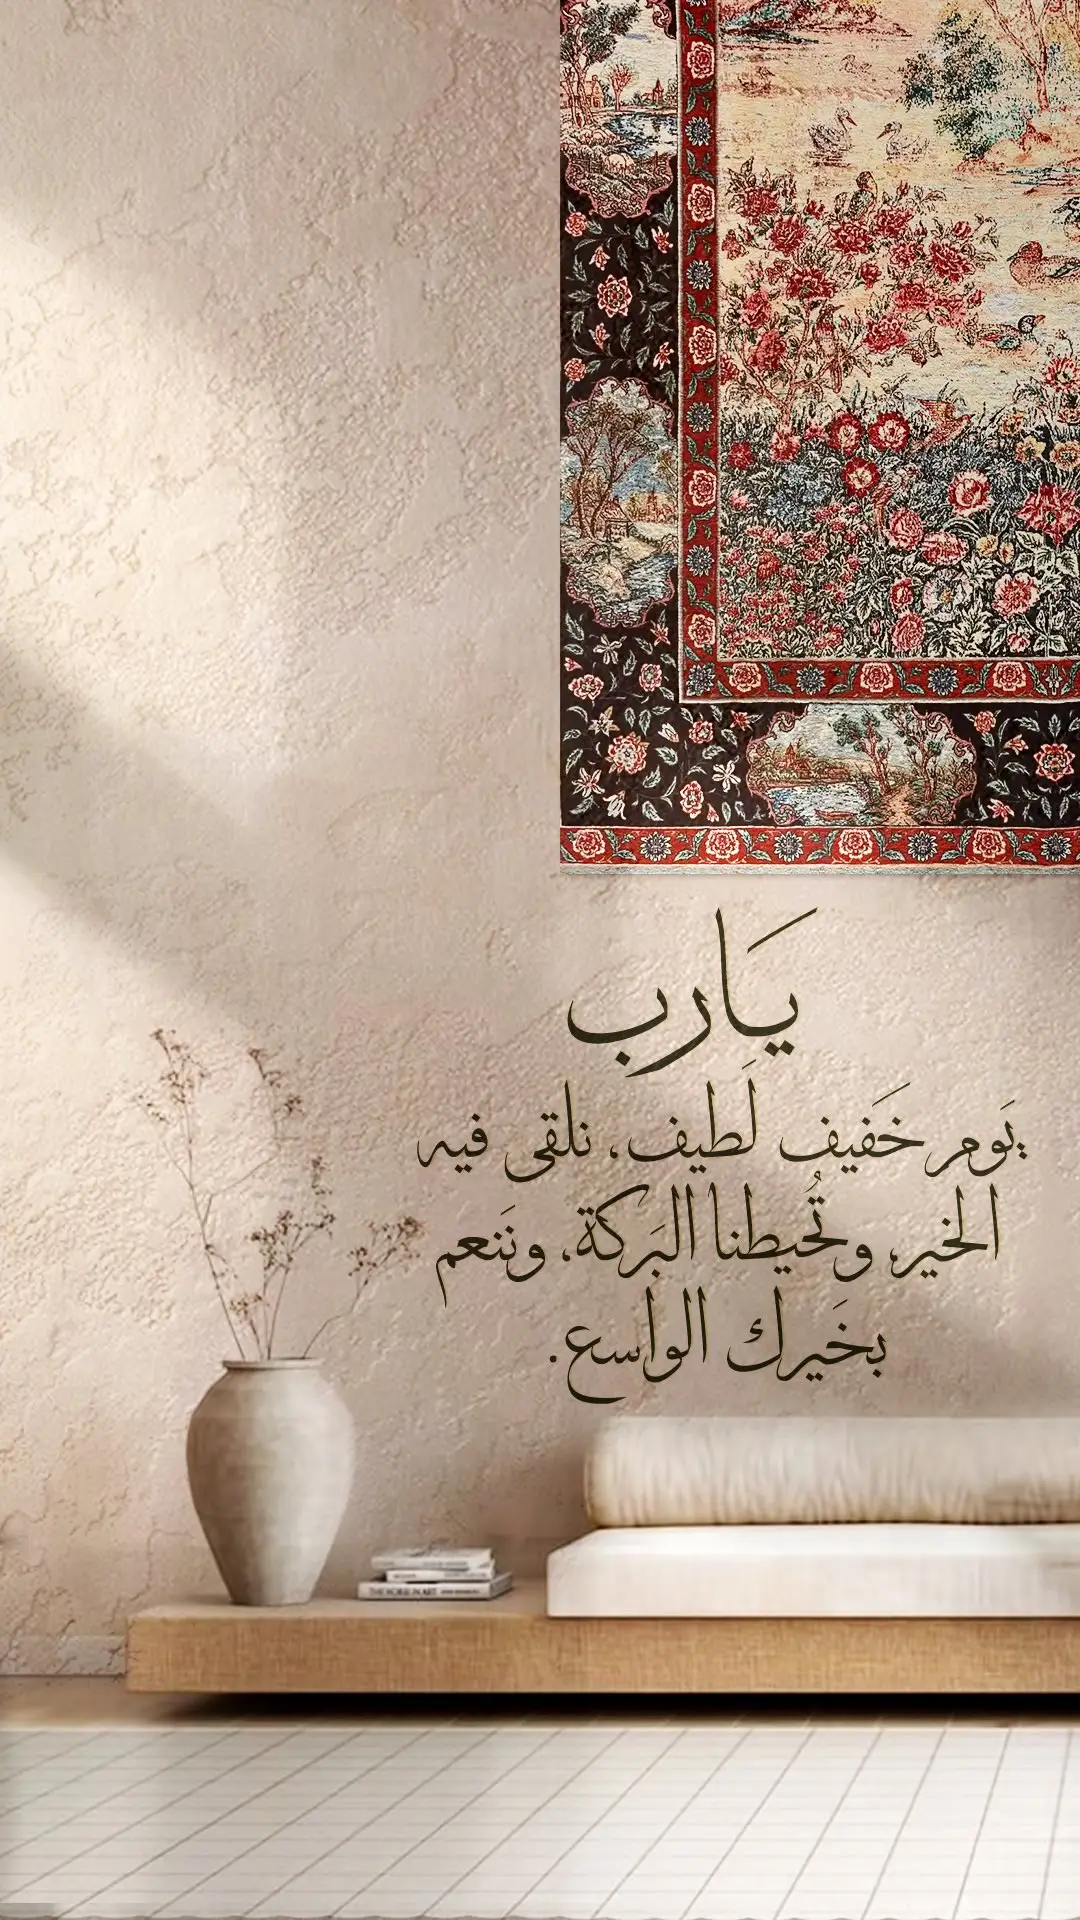 يَارب
يَوم خَفيف لَطيف، نلقى فيه
الخير، وتُحيطنا البَركة، ونَنعم
بخَيرك الواسع.